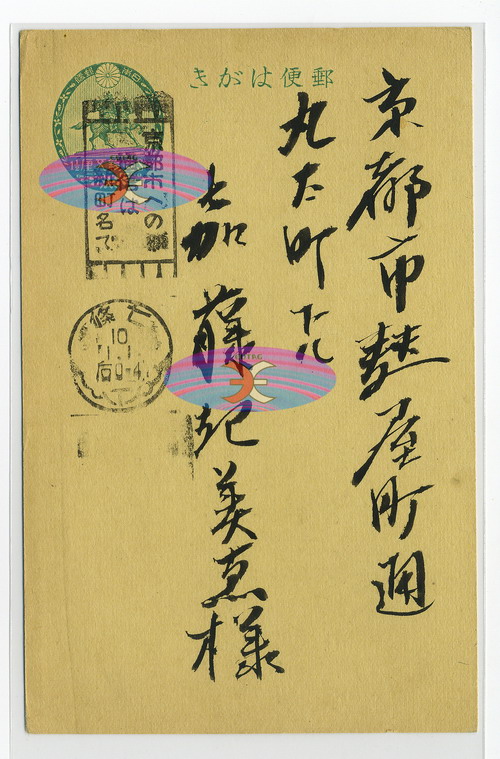 郵便はがき
京都市麩屋町通
丸太町下ル
加藤紀美恵様
京都市への
町名で
七條
10
1.1
后0-4